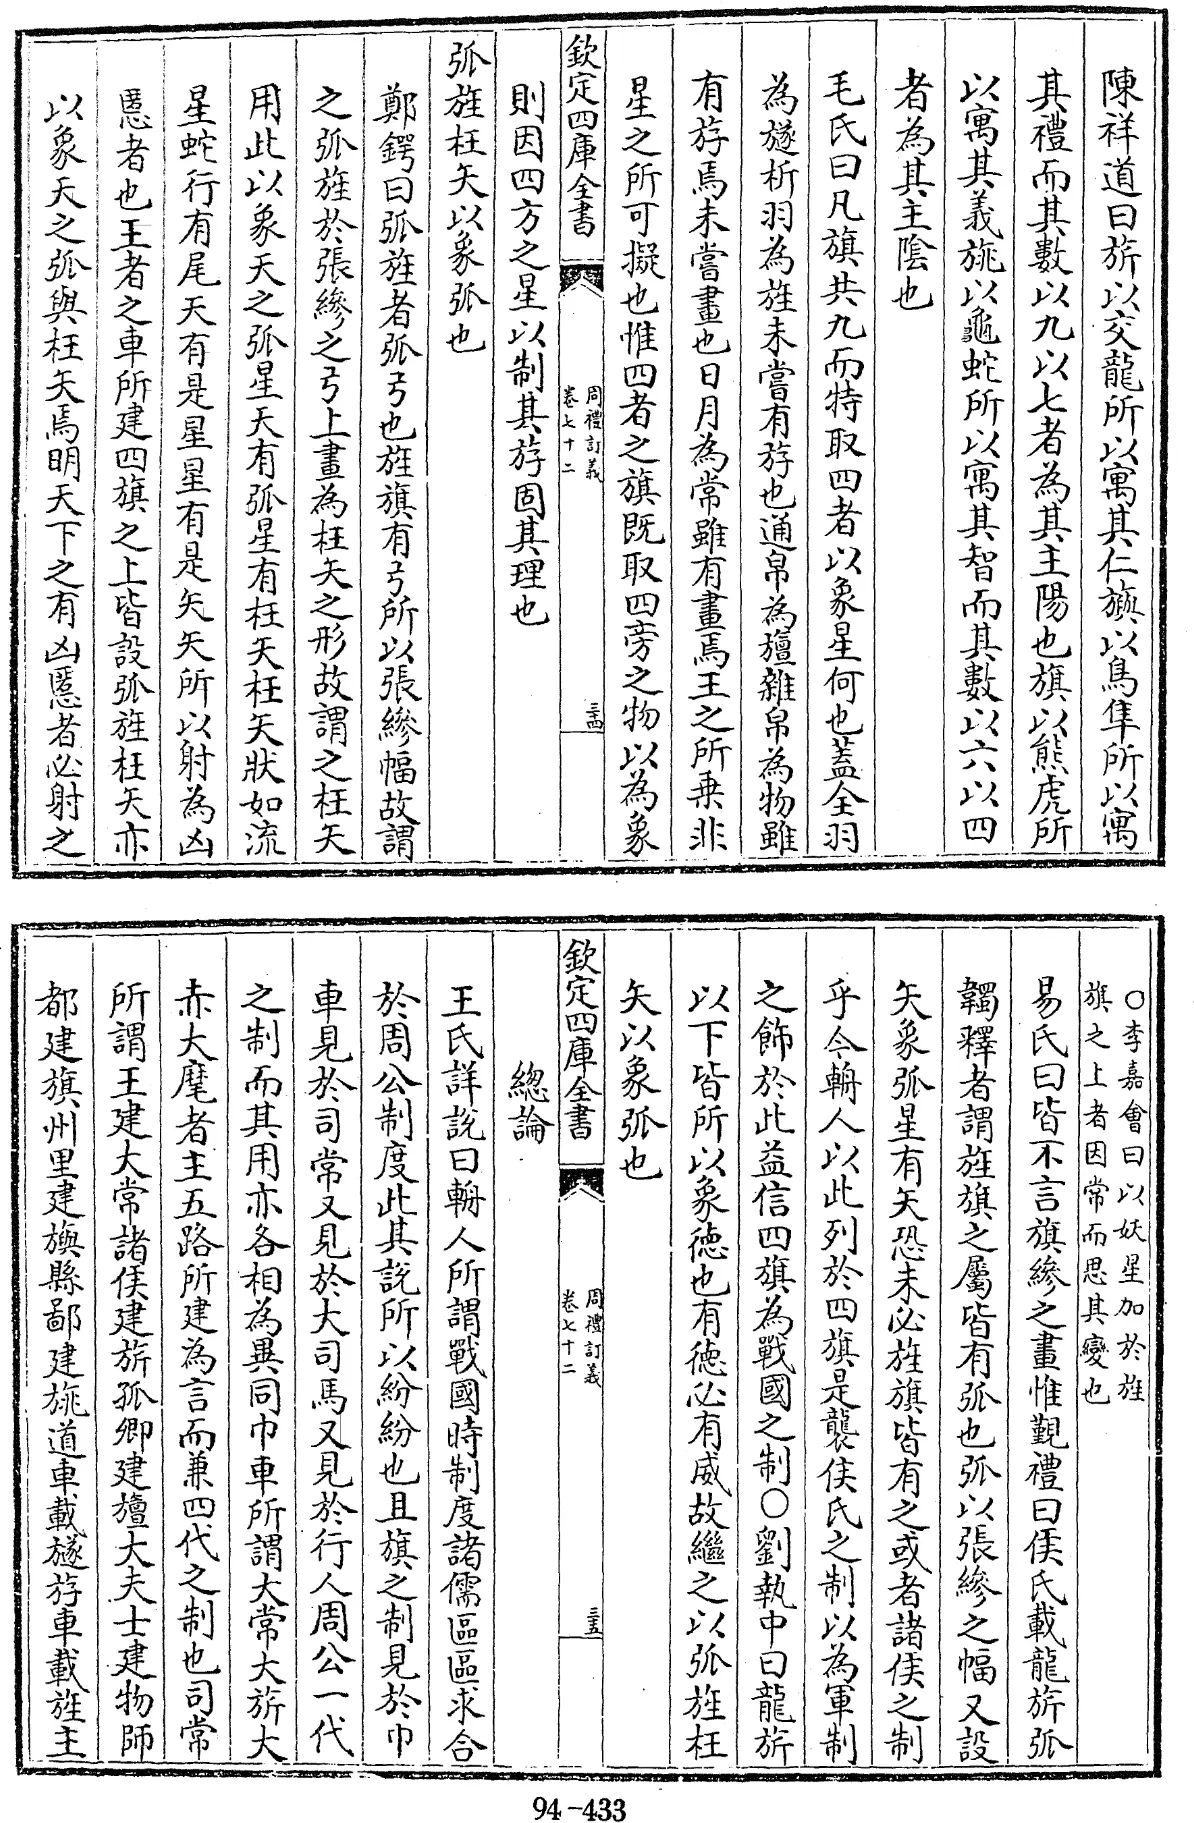 陳祥道曰旂以交龍所以寓其仁旟以鳥隼所以寓
其禮而其數以九以七者為其主陽也旗以熊虎所
以寓其義旐以龜蛇所以寓其智而其數以六以四
者為其主陰也
毛氏曰凡旗共九而特取四者以象星何也蓋全羽
為旞析羽為旌未嘗有斿也通帛為旜雜帛為物雖
有斿焉未嘗畫也日月為常雖有畫焉王之所乗非
星之所可擬也惟四者之旗既取四旁之物以為象
欽定四庫全書
周禮訂義
卷七十二
三四
則因四方之星以制其斿固其理也
弧旌枉矢以象弧也
鄭鍔曰弧旌者弧弓也旌旗有弓所以張縿幅故謂
之弧旌於張縿之弓上畫為枉矢之形故謂之枉矢
用此以象天之弧星天有弧星有枉矢枉矢狀如流
星蛇行有尾天有是星星有是矢矢所以射為凶
慝者也王者之車所建四旗之上皆設弧旌枉矢亦
以象天之弧與枉矢焉明天下之有凶慝者必射之
○李嘉會曰以妖星加於旌
旗之上者因常而思其變也
易氏曰皆不言旗縿之畫惟覲禮曰侯氏載龍旂弧
韣釋者謂旌旗之屬皆有弧也弧以張縿之幅又設
矢象弧星有矢恐未必旌旗皆有之或者諸侯之制
乎今輈人以此列於四旗是襲侯氏之制以為軍制
之飾於此益信四旗為戰國之制○劉執中曰龍旂
以下皆所以象徳也有徳必有威故繼之以弧旌枉
矢以象弧也
欽定四庫全書
周禮訂義
卷七十二
三五
總論
王氏詳說曰輈人所謂戰國時制度諸儒區區求合
於周公制度此其說所以紛紛也且旗之制見於巾
車見於司常又見於大司馬又見於行人周公一代
之制而其用亦各相為異同巾車所謂大常大旂大
赤大麾者主五路所建為言而兼四代之制也司常
所謂王建大常諸侯建旂孤卿建旜大夫士建物師
都建旗州里建旟縣鄙建旐道車載旞斿車載旌主
94-433